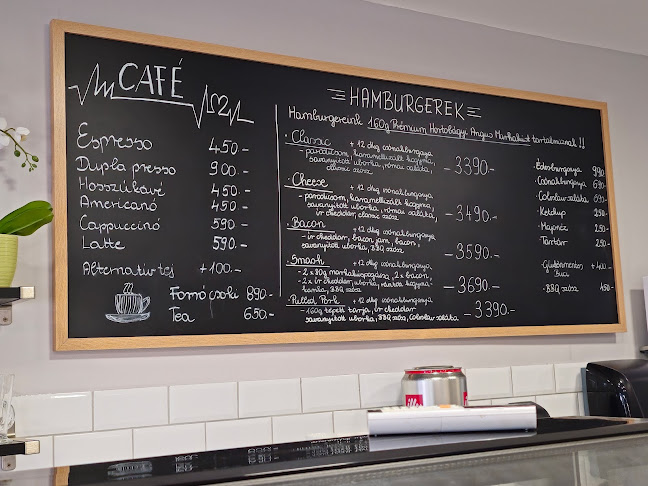 CAFÉ
Espresso 450.-
Dupla presso 900.-
Hosszúkávé 450.-
Americanó 450.-
Cappuccinó 590.-
Latte 590.-
Alternatív tej +100.-
Forró csoki 890.-
Tea 650.-
HAMBURGEREK
Hamburgereink 160g Prémium Hortobágyi Angus Marhahúst tartalmaznak!!
Classic + 12 dkg csónakburgonya
paradicsom, karamellizált hagyma,
savanyított uborka, római saláta,
classic szósz
- 3390.-
Cheese + 12 dkg csónakburgonya
- paradicsom, karamellizált hagyma,
savanyított uborka, római saláta,
ír cheddar, classic szósz
- 3490.-
Bacon + 12 dkg csónakburgonya
- ír cheddar, bacon jam, bacon,
savanyított uborka, BBQ szósz
- 3590.-
Smash + 12 dkg csónakburgonya,
- 2 x 80g marhahúspogácsa, 2 x bacon,
- 2 x ír cheddar, uborka, rántott hagyma-
karika, BBQ szósz
- 3690.-
Pulled Pork + 12 dkg csónakburgonya
- 160g tépett tarja, ír cheddar
savanyított uborka, BBQ szósz, Coleslaw saláta
- 3390.-
Édesburgonya 990
Csónakburgonya 690
Coleslaw saláta 690
Ketchup 250.-
Majonéz 250.-
Tartár 250.-
Gluténmentes
Buci +400.-
BBQ szósz 450.-
illy
CAFÉ